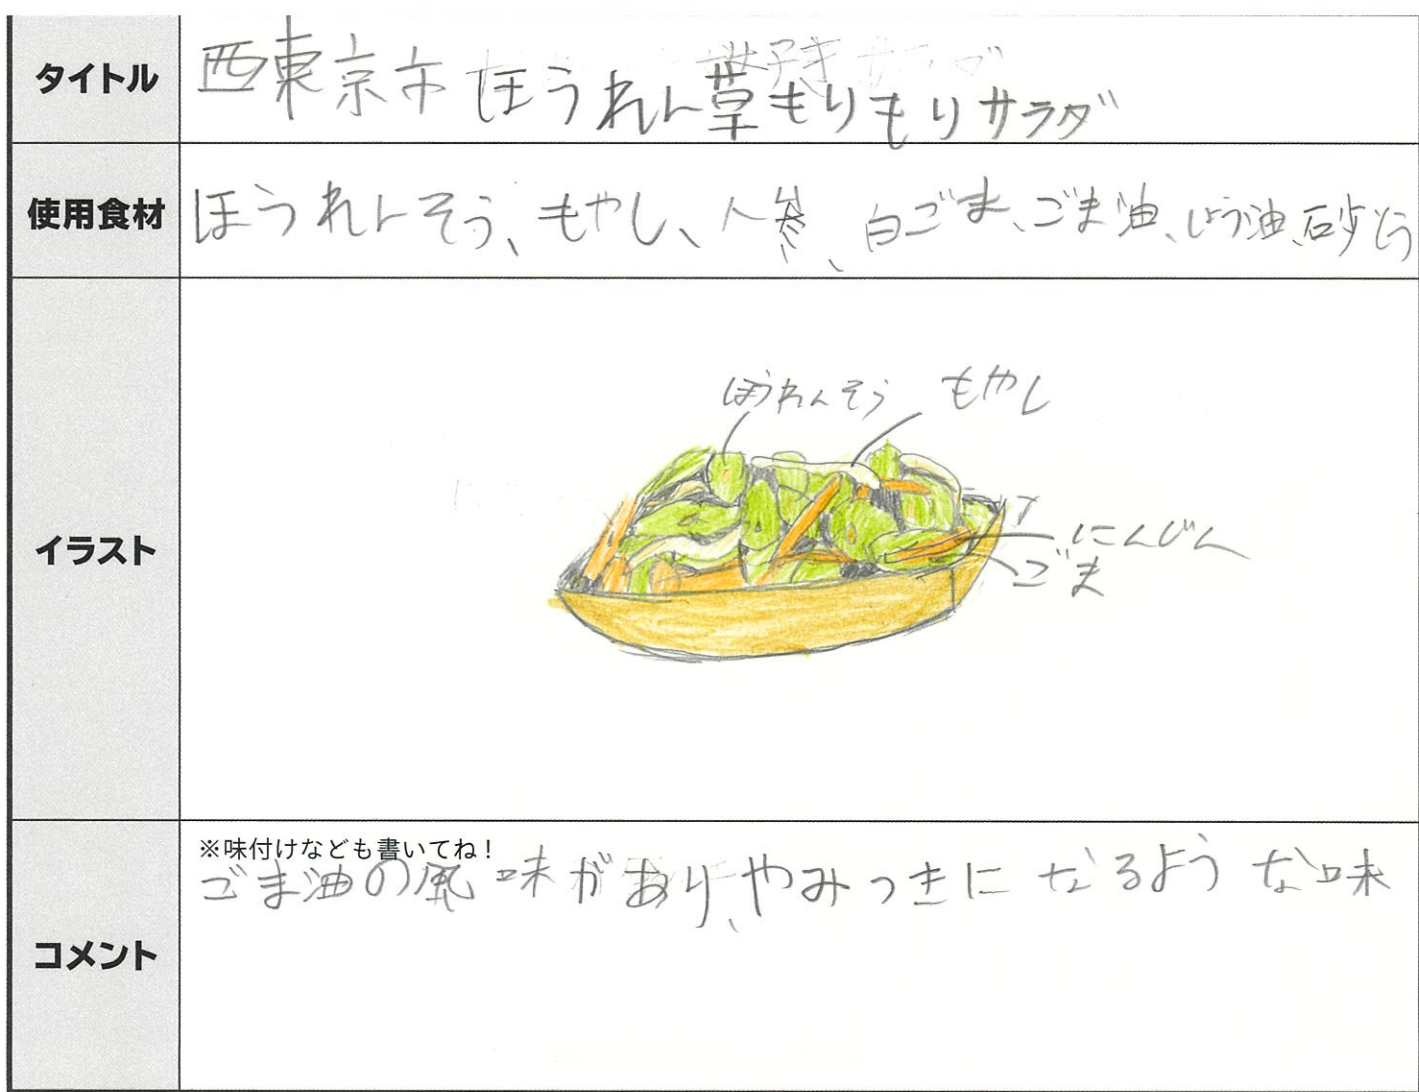 タイトル
西東京市ほうれん草もりもりサラダ
使用食材
ほうれんそう、もやし、人参、白ごま、ごま油、しょう油、砂とう
イラスト
ほうれんそう もやし
にんじん
ごま
コメント
※味付けなども書いてね!
ごま油の風味があり、やみつきになるような味